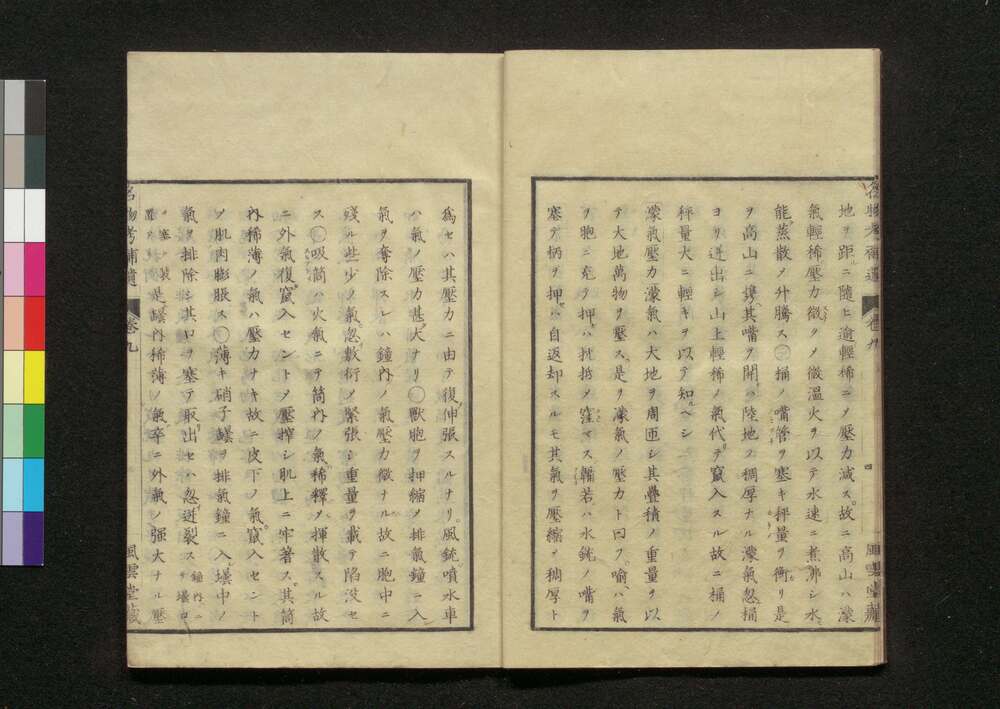 名物考補遺 卷九 四 風雲堂藏
地ヲ距ニ隨ヒ逾輕稀ニノ壓力減ス故ニ高山ハ濛
氣輕稀壓力微クノ微溫火ヲ以テ水速ニ煮沸シ水
能蒸散ノ升騰ス㊂桶ノ嘴管ヲ塞キ秤量ヲ衡リ是
ヲ高山ニ攜其嘴ヲ開ハ陸地ノ稠厚ナル濛氣忽桶
ヨリ迸出シ山上輕稀ノ氣代テ竄入スル故ニ桶ノ
秤量大ニ輕キヲ以テ知ヘシ
濛氣壓力濛氣ハ大地ヲ周匝シ其疊積ノ重量ヲ以
テ大地萬物ヲ壓ス是ヲ濛氣ノ壓力ト曰フ喻ハ氣
ヲ胞ニ充ヲ押ハ抵ノ窪マス韛若ハ水銃ノ嘴ヲ
塞テ柄ヲ押ハ自返却スルモ其氣ヲ壓縮ノ稠厚ト
爲セハ其壓力ニ由テ復伸張スルナリ風銃噴水車
ハ氣ノ壓力甚大ナリ獸胞ヲ押縮ノ排氣鐘ニ入
氣ヲ奪除スレハ鐘內ノ氣壓力微ナル故ニ胞中ニ
殘ル些少ノ氣忽敷衍ノ緊張シ重量ヲ載テ陷沒セ
ス吸筒ハ火氣ニテ筒內ノ氣稀釋ヲ揮散スル故
ニ外氣復竄入セントノ壓搾シ肌上ニ牢著ス其筒
內稀薄ノ氣ハ壓力ナキ故ニ皮下ノ氣竄入セント
ノ肌肉膨脹ス薄キ硝子罎ヲ排氣鐘ニ入罎中ノ
氣ヲ排除シ其口ヲ塞テ取出セハ忽迸裂ス鐘內ニヲ罎口
ヲ塞ノ裝是罎內稀薄ノ氣卒ニ外氣ノ强大ナル壓
名物考補遺 卷九 風雲堂藏